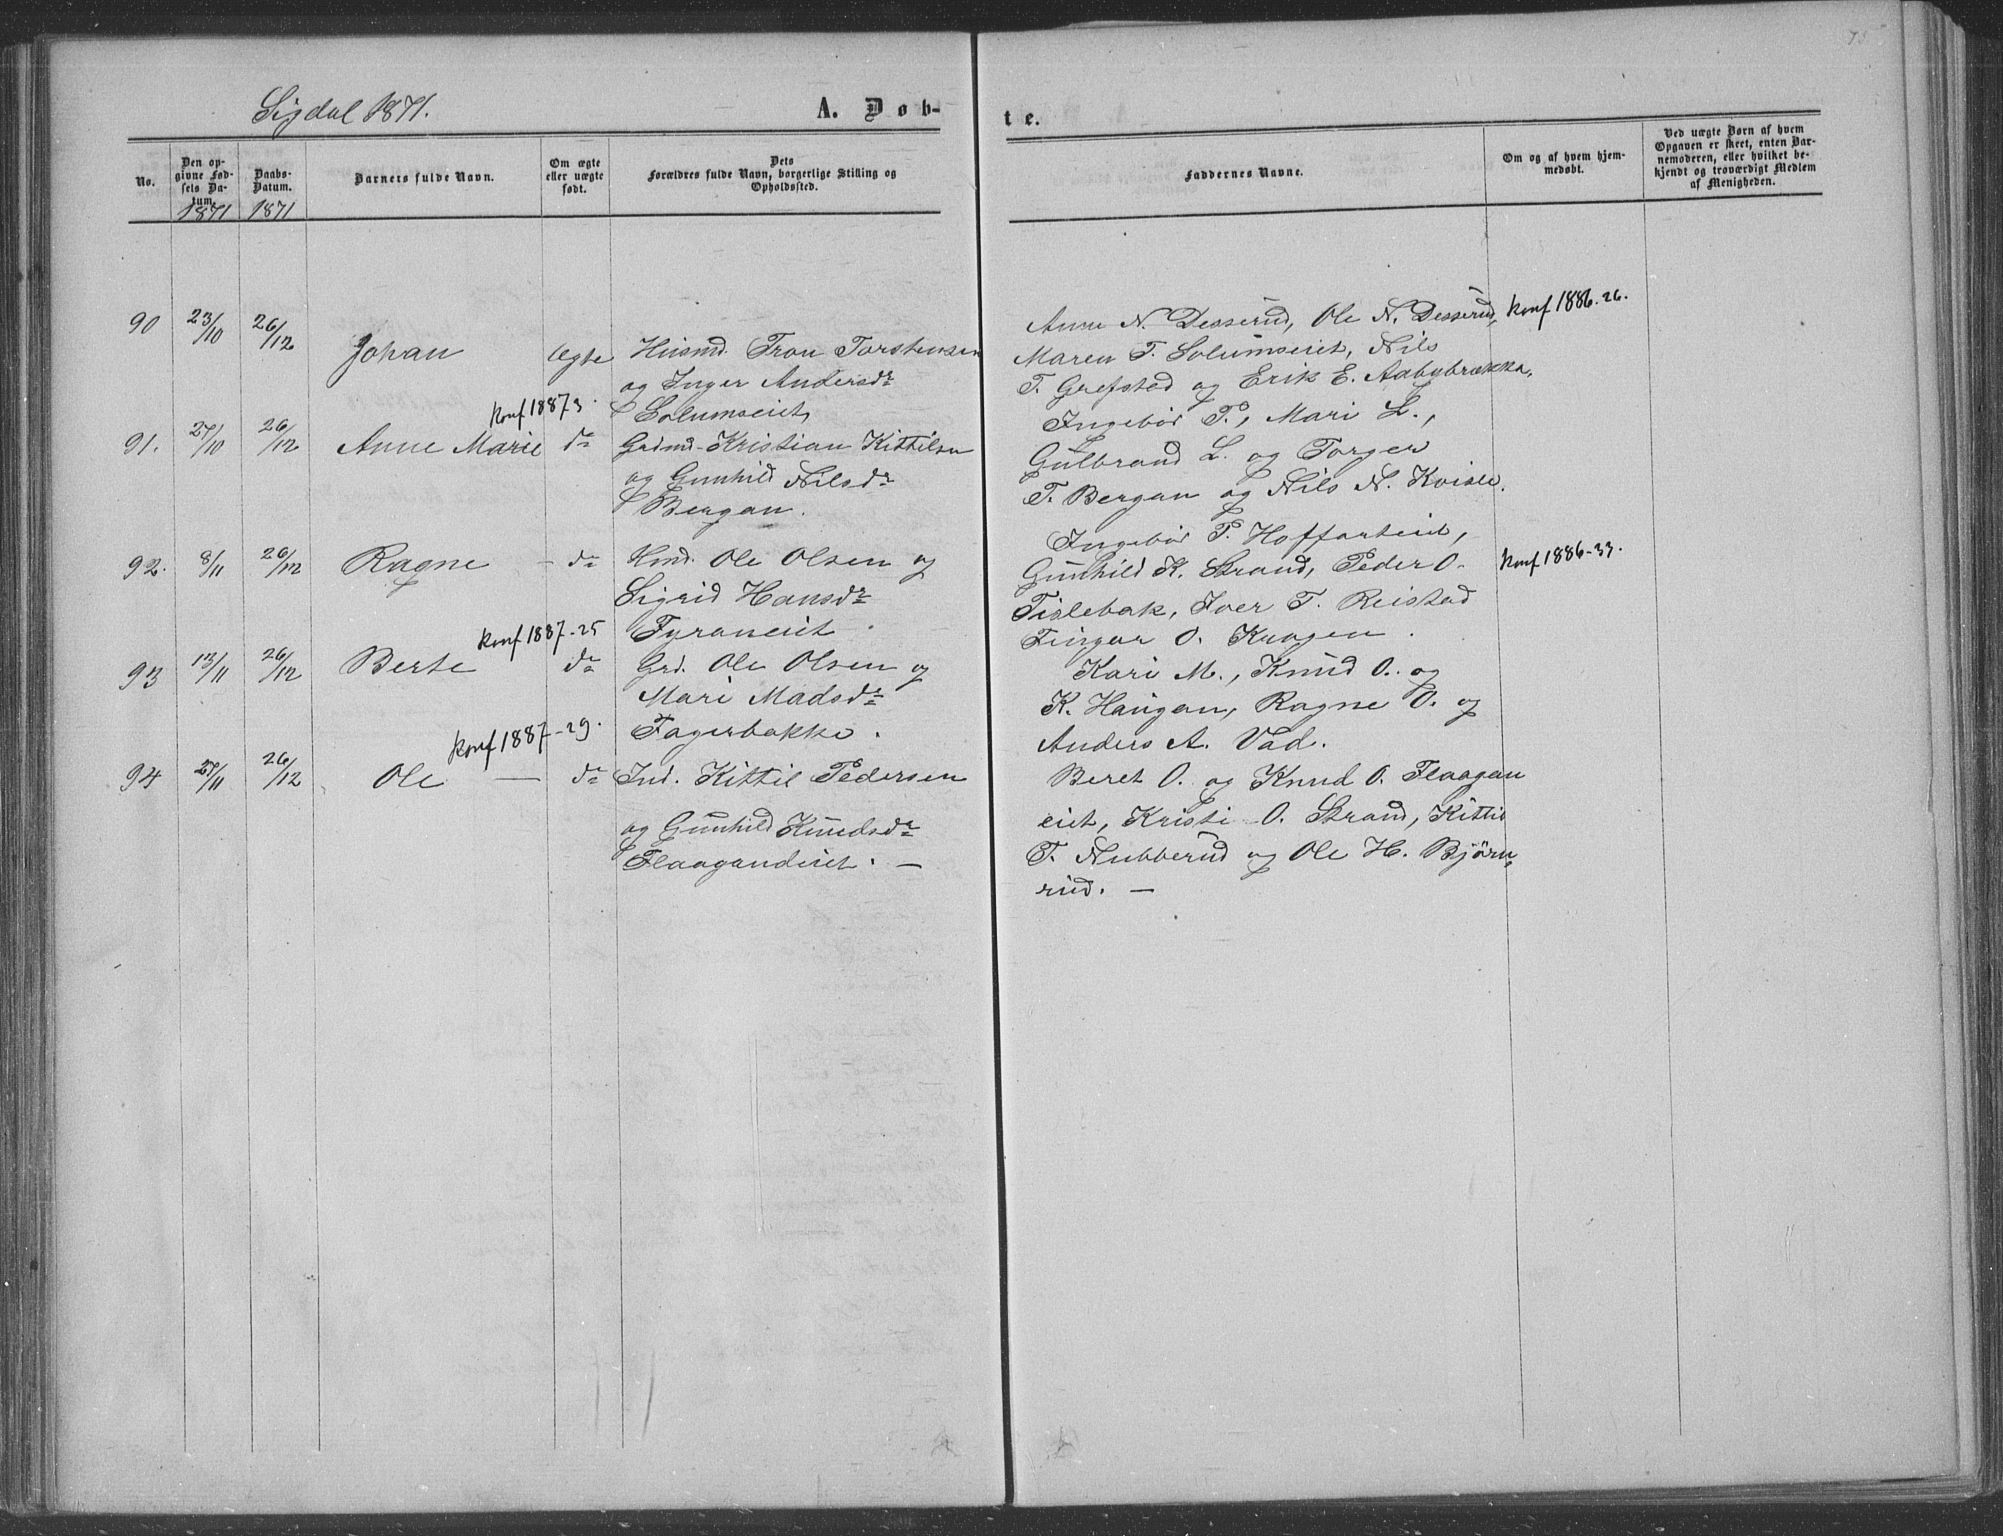 75
Sigdal 1871.
A. Døb-
te.
No.
Den opgivne Fødsels Datum.
1871
Daabs-Datum.
1871
Barnets fulde Navn.
Om ægte eller uægte født.
Dets Forældres fulde Navn, borgerlige Stilling og Opholdssted.
Faddernes Navne.
Om og af hvem hjemmedøbt.
Ved uægte Børn af hvem Opgaven er skeet, enten Barnemoderen, eller hvilket bekjendt og troværdigt Medlem af Menigheden.
90 23/10 26/12 Johan Ægte Husmd. Tron Torstensen
og Inger Andersdr
Solumseiet
Anne N. Desserud, Ole N. Desserud, konf 1886-26.
Maren T. Solumseiet, Nils
T. Grefstad og Erik E. Aabybrække.
konf 1887 3.
91. 27/10 26/12 Anne Marie do Grdmd. Kristian Kittilsen
og Gunhild Nilsdr
Bergan.
Ingebør T., Mari L.,
Gulbrand L. og Torger
T. Bergan og Nils N. Kvisle.
92. 8/11 26/12 Ragne – do Hmd. Ole Olsen og
Sigrid Hansdr
Fyraneiet.
Ingebør P. Hoffarteiet,
Gunhild K. Strand, Peder O. konf 1886-33.
Tislebak, Iver T. Reistad
Fingar O. Kragen.
konf 1887-25
93 13/11 26/12 Berte do Grd. Ole Olsen og
Mari Madsdr
Fagerbakke.
Kari M., Knud O. og
K. Haugan, Ragne O. og
Anders A. Vad.
konf 1887-29.
94 27/11 26/12 Ole — do Ind. Kittil Pedersen
og Gunhild Knudsdr
Flaagandeiet. —
Beret O. og Knud O. Flaagan
eiet, Kristi O. Strand, Kittil
T. Nubberud og Ole H. Bjørn
rud. —